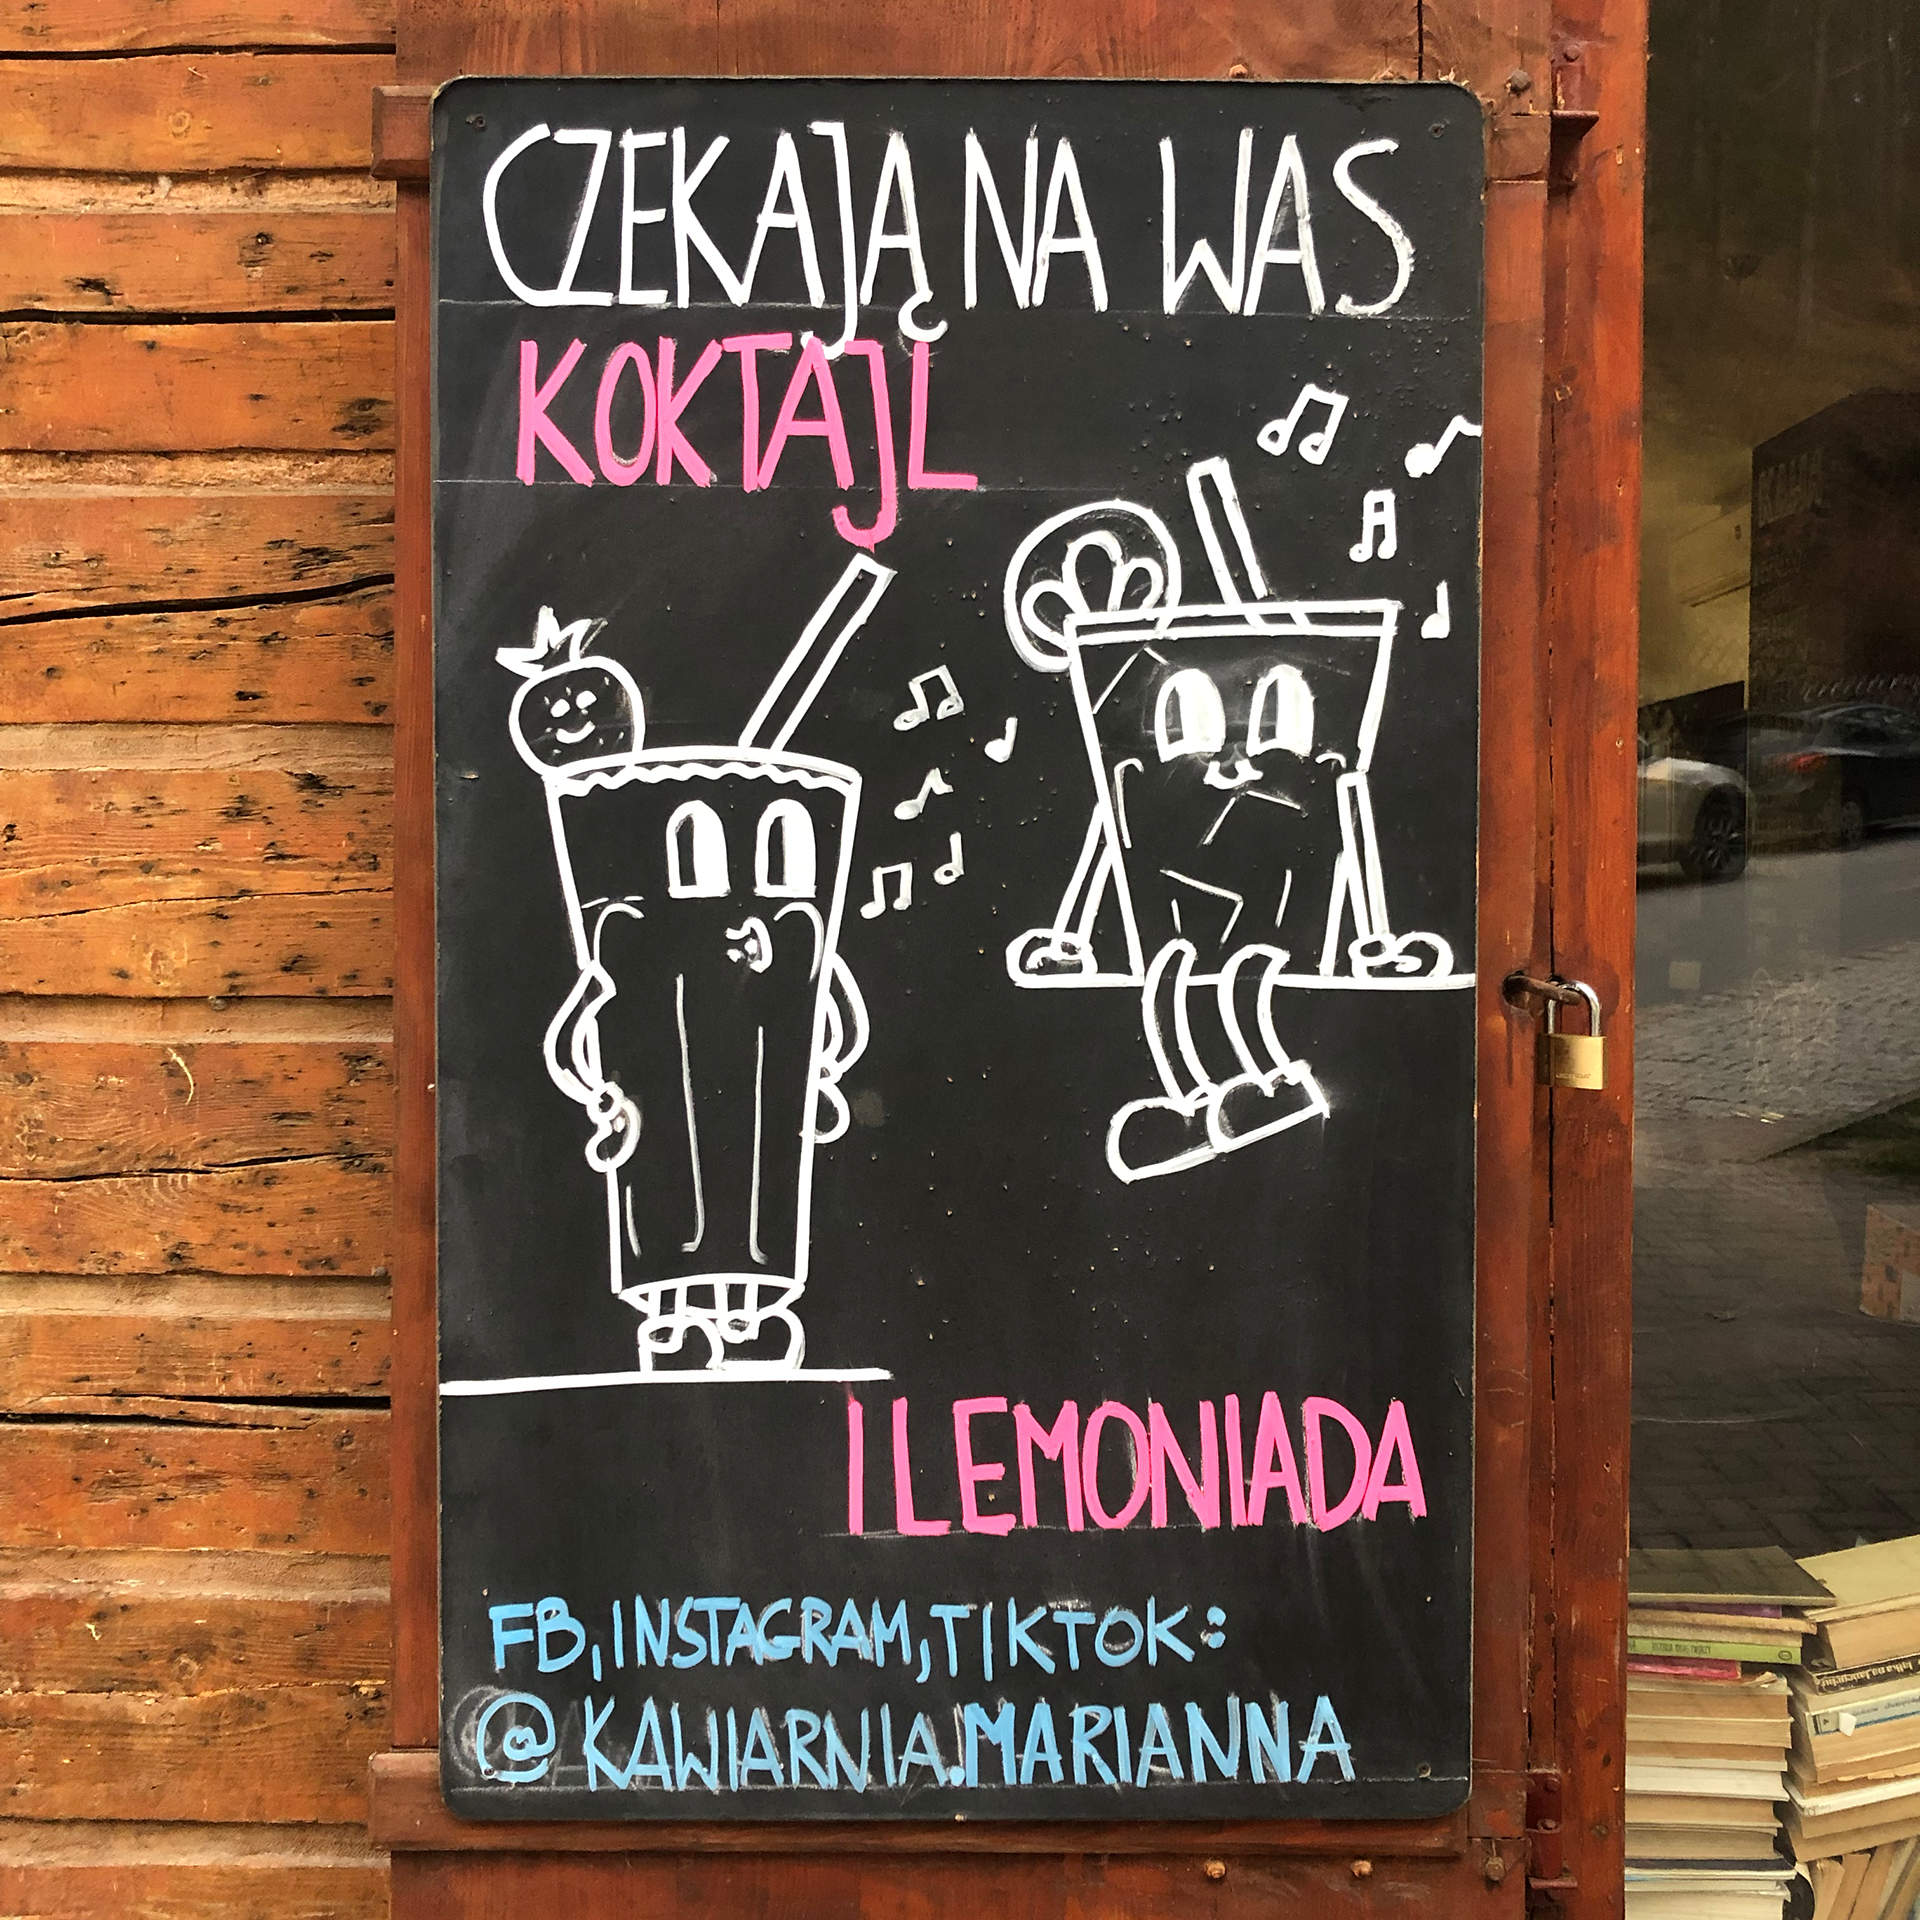 CZEKAJĄ NA WAS
KOKTAJL
I LEMONIADA
FB, INSTAGRAM, TIKTOK:
@KAWIARNIA.MARIANNA